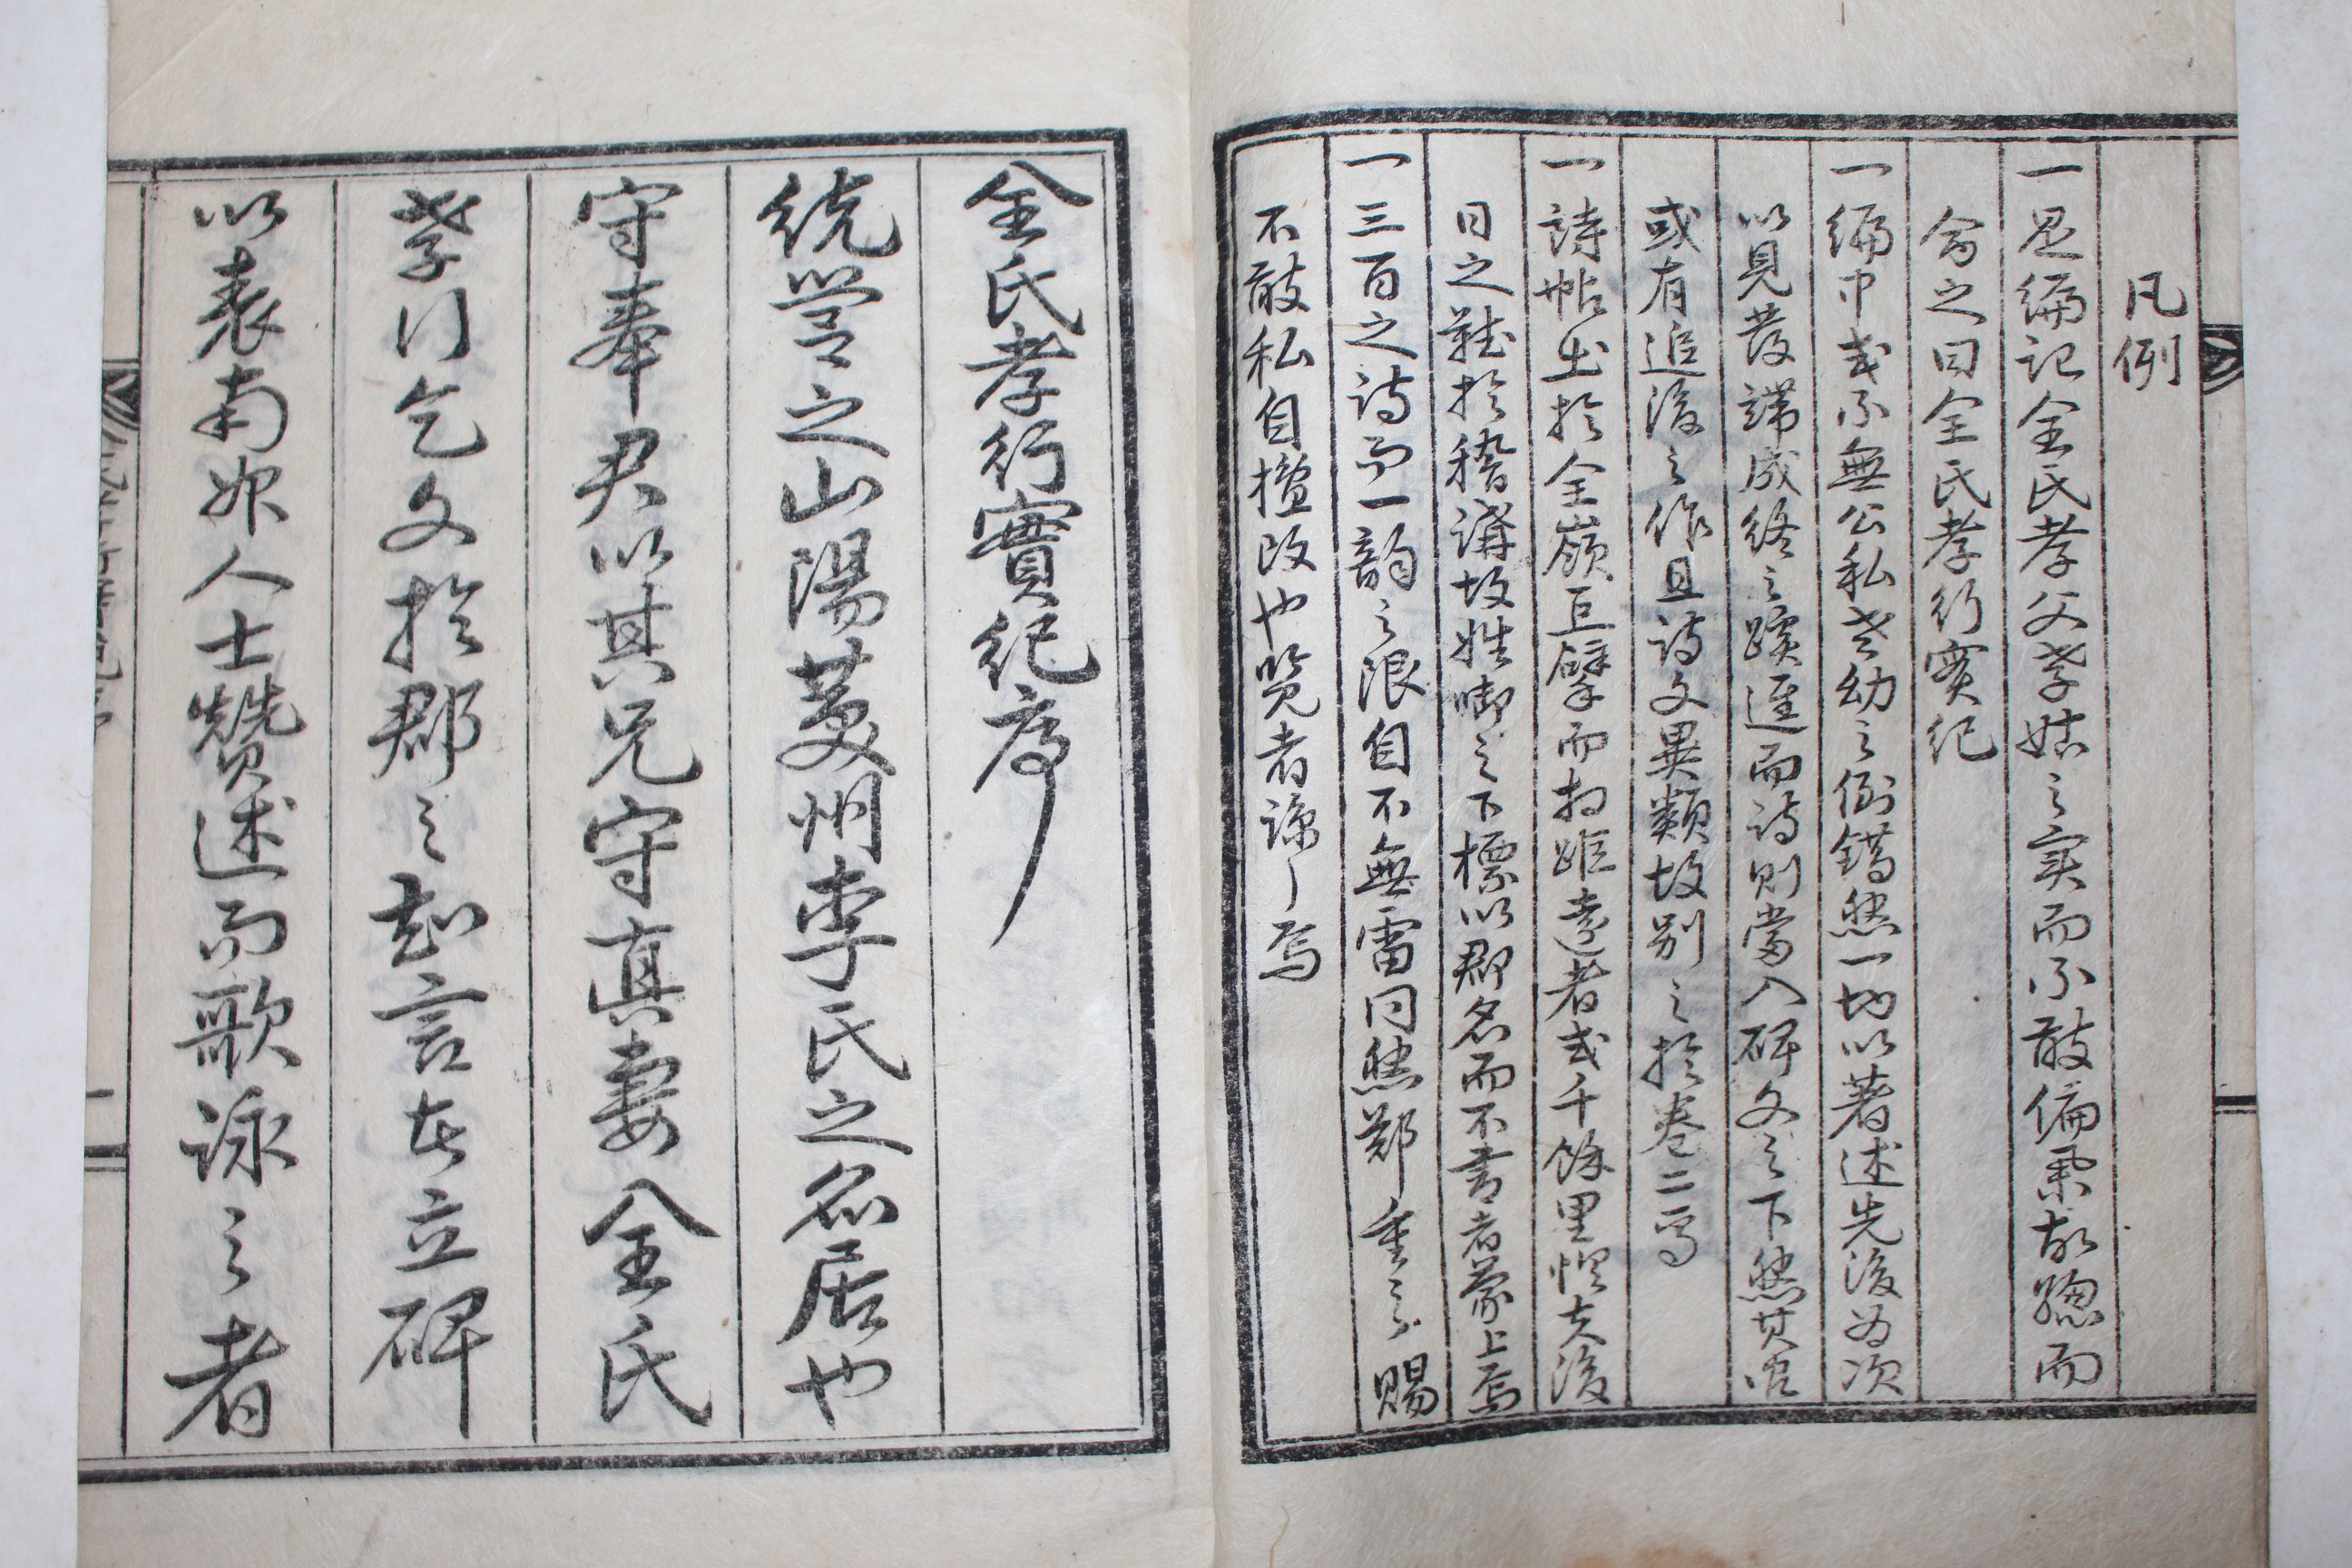 凡例
一是編記全氏孝父孝姑之実而不敢偏棄故總而
命之曰全氏孝行实紀
一編中或不無公私老幼之倒錯然一切以著述先後為次
以見發端成終之蹟進而詩則當入碑文之下然其
或有追後之作且詩文異類故別之於卷二焉
一詩帖出於全嶺巨擘而相距遠者或千餘里恨夫後
日之難於稽講故姓啣之下標以郡名而不書者蒙上焉
一三百之詩而一韵之限自不無雷同然鄭重之賜
不敢私自擅改也览者諒之焉
全氏孝行實紀序
統營之山陽菱州李氏之名居也
守奉君以其兄守眞妻全氏
孝行乞文於郡之知言者立碑
以表南州人士贊述而歌詠之者